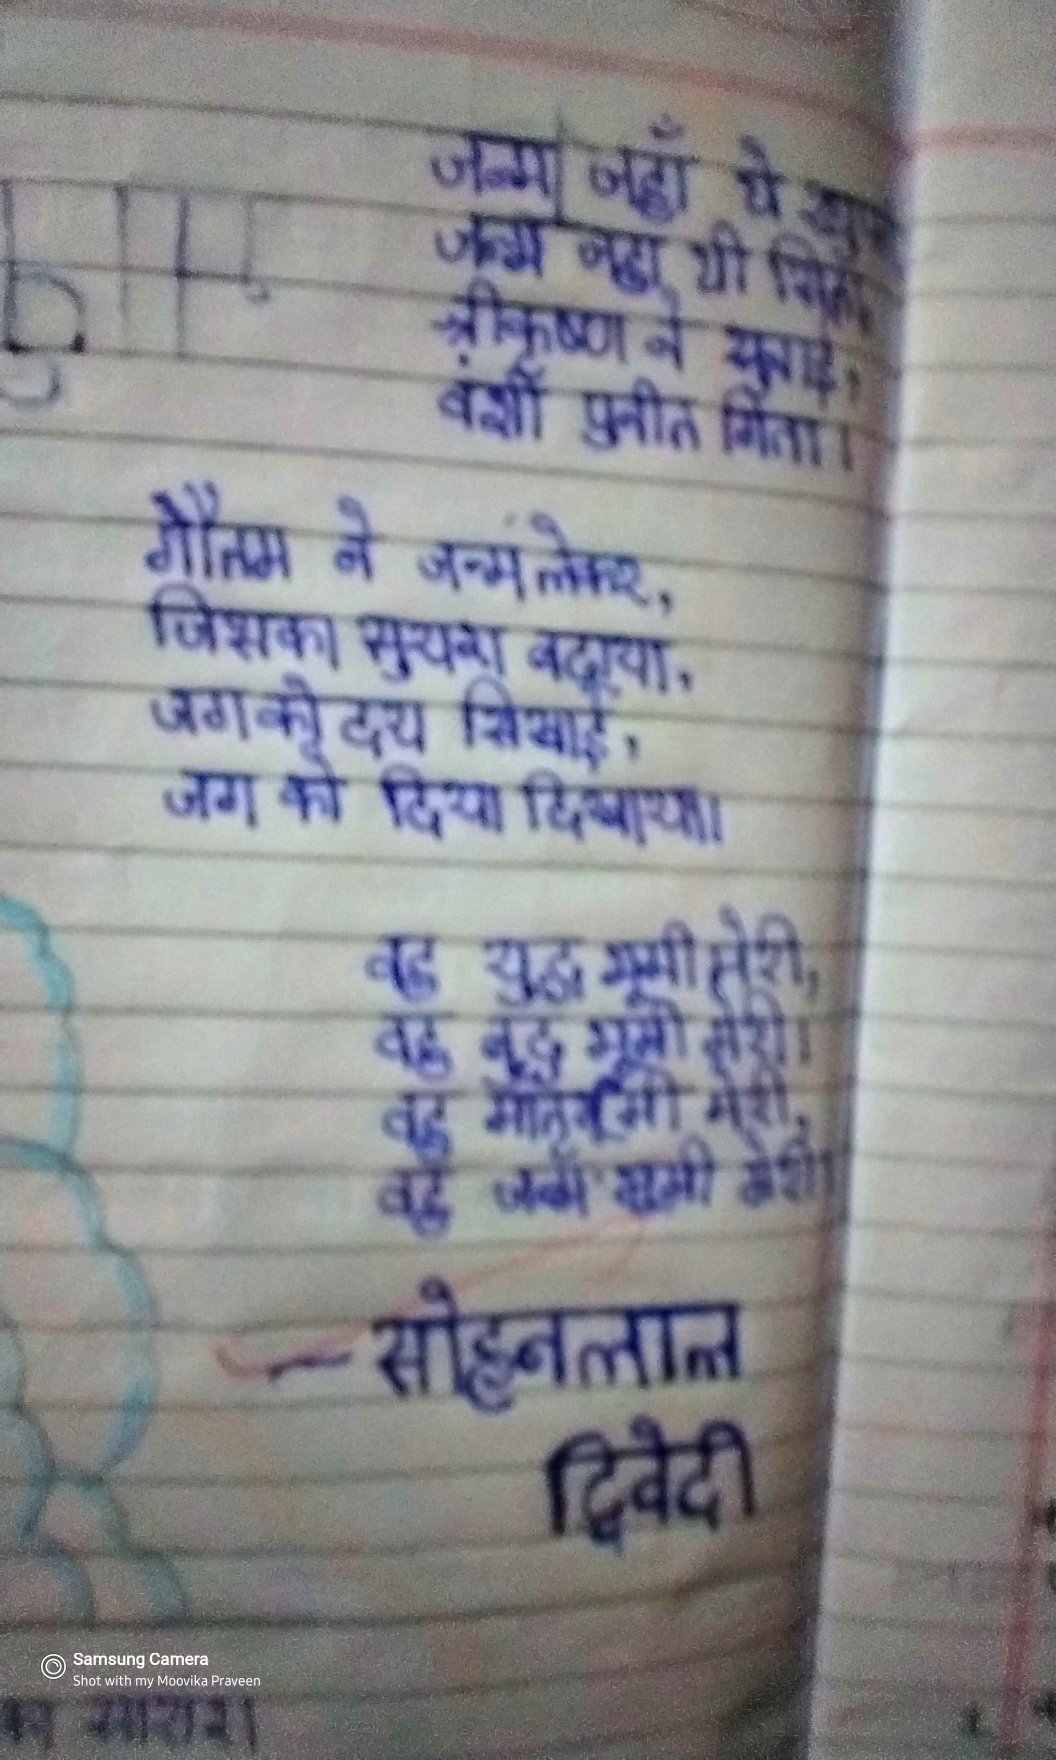 जन्म जहाँ थे
जन्म जहा थी
श्रीकृष्ण ने सुनाई,
वंशी पुनीत गिता।
गौतम ने जन्म लेकर,
जिसका सुयश बढ़ाया,
जग को दया सिखाई,
जग को दिया दिखाया।
वह युद्ध भूमी मेरी,
वह बुद्ध भूमी मेरी।
वह मातृभूमी मेरी,
वह जन्म भूमी मेरी।
सोहनलाल
द्विवेदी
Samsung Camera
Shot with my Moovika Praveen